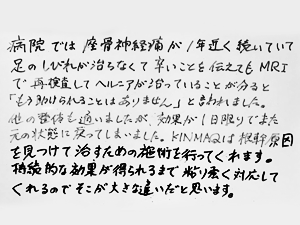 病院では座骨神経痛が1年近く続いていて
足のしびれが治らなくて辛いことを伝えてもMRI
で再検査してヘルニアが治っていることが分ると
「もう助けられることはありません」と言われました。
他の整体も通いましたが、効果が1日限りでまた
元の状態に戻ってしまいました。KINMAQは根幹原因
を見つけて治すための施術を行ってくれます。
持続的な効果が得られるまで粘り強く対応して
くれるのでそこが大きな違いだと思います。